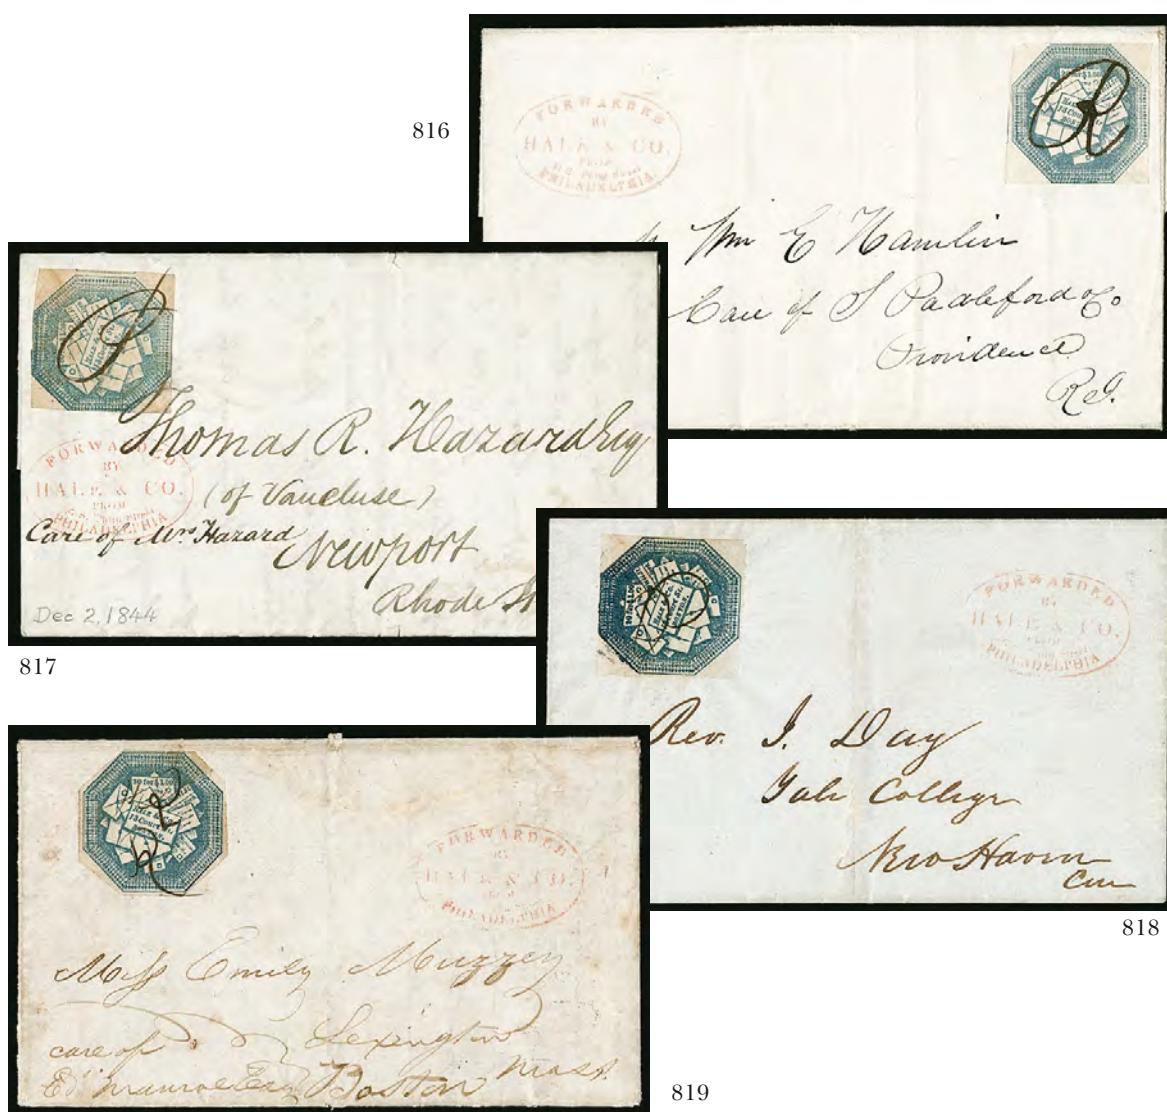 816
FORWARDED
BY
HALE & CO.
FROM
PHILADELPHIA
R
Wm E Hamlin
Care of S Padleford & Co
Providence
R.I.
FORWARDED
BY
HALE & CO.
FROM
PHILADELPHIA
Thomas R. Hazard Esq
(of Vaucluse)
Care of Mrs Hazard
Newport
Rhode
Dec 2, 1844
817
FORWARDED
BY
HALE & CO.
FROM
PHILADELPHIA
Rev. J. Day
Yale College
New Haven
Con
818
20 for $1.00
HALE & Co.
13 Court St.
BOSTON
FORWARDED
BY
HALE & CO.
FROM
PHILADELPHIA
Miss Emily Muzzey
Lexington
care of
Ed Munroe Esq Boston Mass.
819